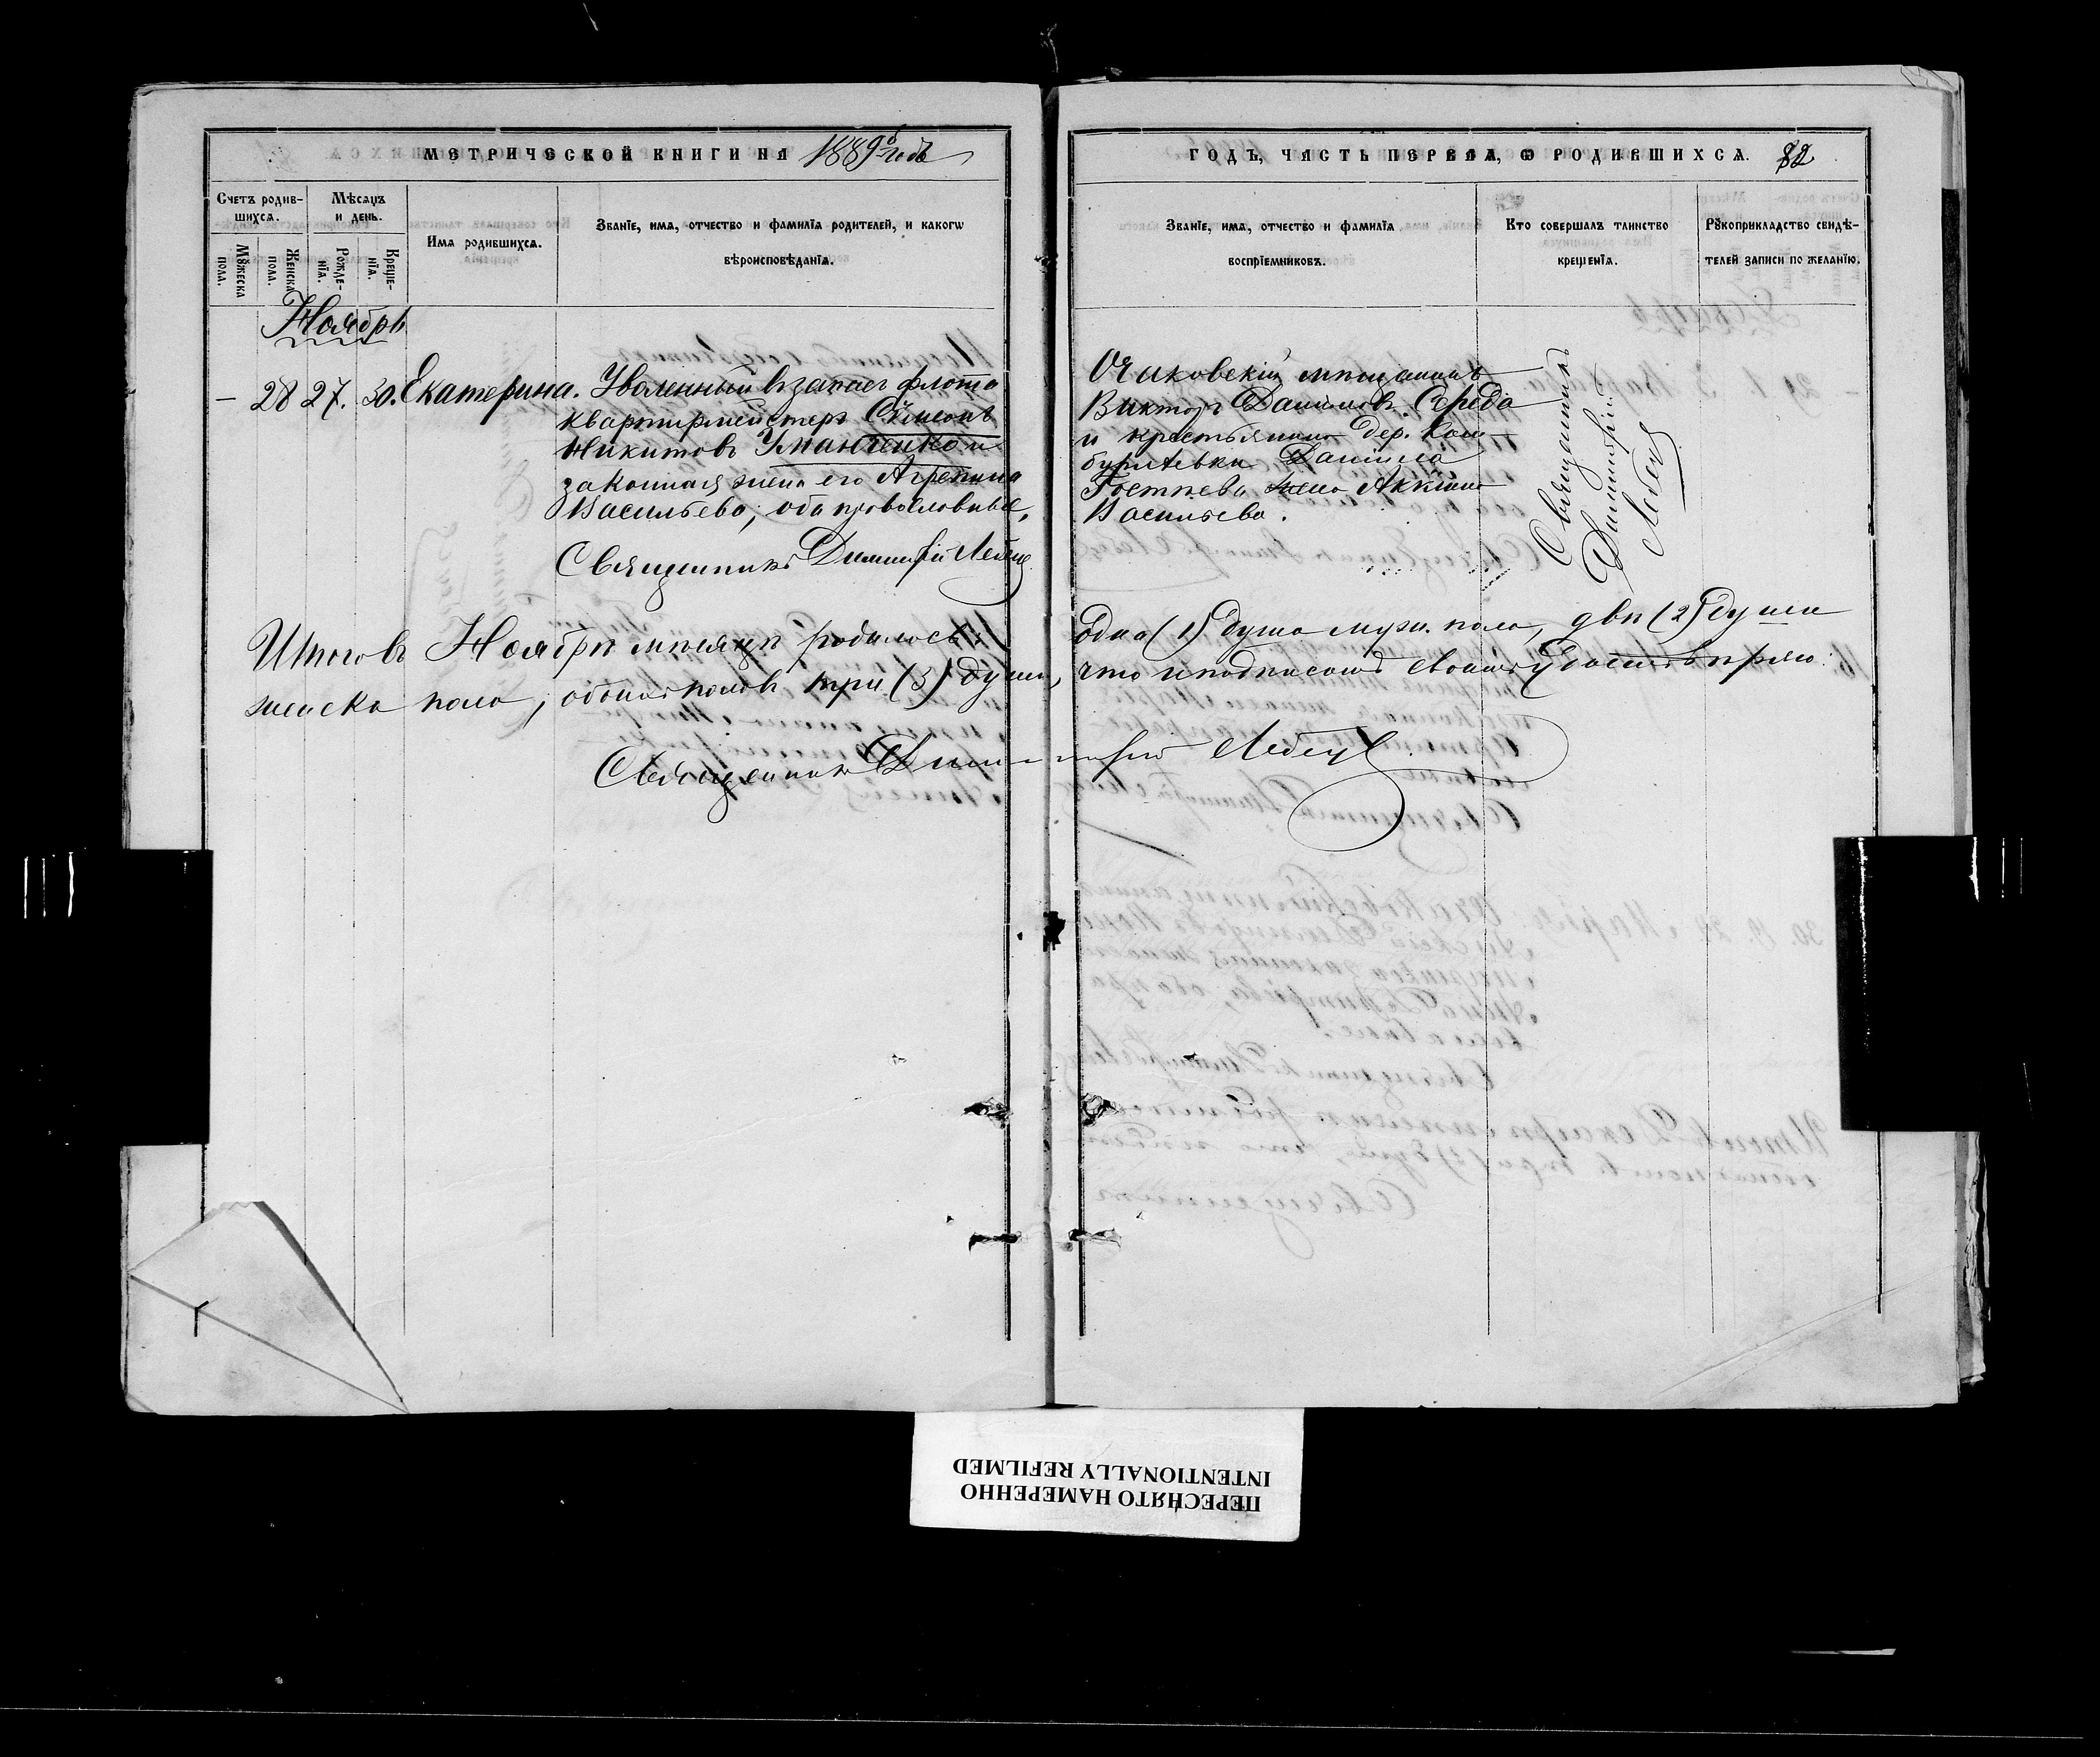 МЕТРИЧЕСКОЙ КНИГИ НА 1889й годъ
ГОДЪ, ЧАСТЬ ПЕРВАЯ, Ѡ РОДИВШИХСЯ. 82
Счетъ родив-
шихся.
Мѣсяцъ
и день.
Мꙋжеска
пола.
Женска
пола.
Рожде-
нїя.
Креще-
нїя.
Имя родившихся.
Званїе, имя, отчество и фамилїя родителей, и какогѡ
вѣроисповѣданїя.
Званїе, имя, отчество и фамилїя
воспрїемниковъ.
Кто совершалъ таинство
крещенїя.
Рꙋкоприкладство свидѣ-
телей записи по желанїю.
Ноябрь
— 28 27. 30. Екатерина. Уволенный въ запасъ флота
квартирмейстеръ Сѵмеонъ
Никитовъ Уманченко и
законная жена его Агрепина
Васильева, оба православные,
Священникъ Димитрій Лебедь
Очаковскій мѣщанинъ
Викторъ Даниловъ Середа
и крестьянина дер. Кам-
буріевки Даніила
жена Аккилина
Васильева.
Священникъ
Димитрій
Лебедь
Итого въ Ноябрѣ мѣсяцѣ родилось: одна (1) душа муж. пола, двѣ (2) души
женска пола, обоихъ половъ три (3) души, что и подписомъ своимъ удостовѣряю:
Священникъ Димитрій Лебедь
ПЕРЕСНЯТО НАМЕРЕННО
INTENTIONALLY REFILMED